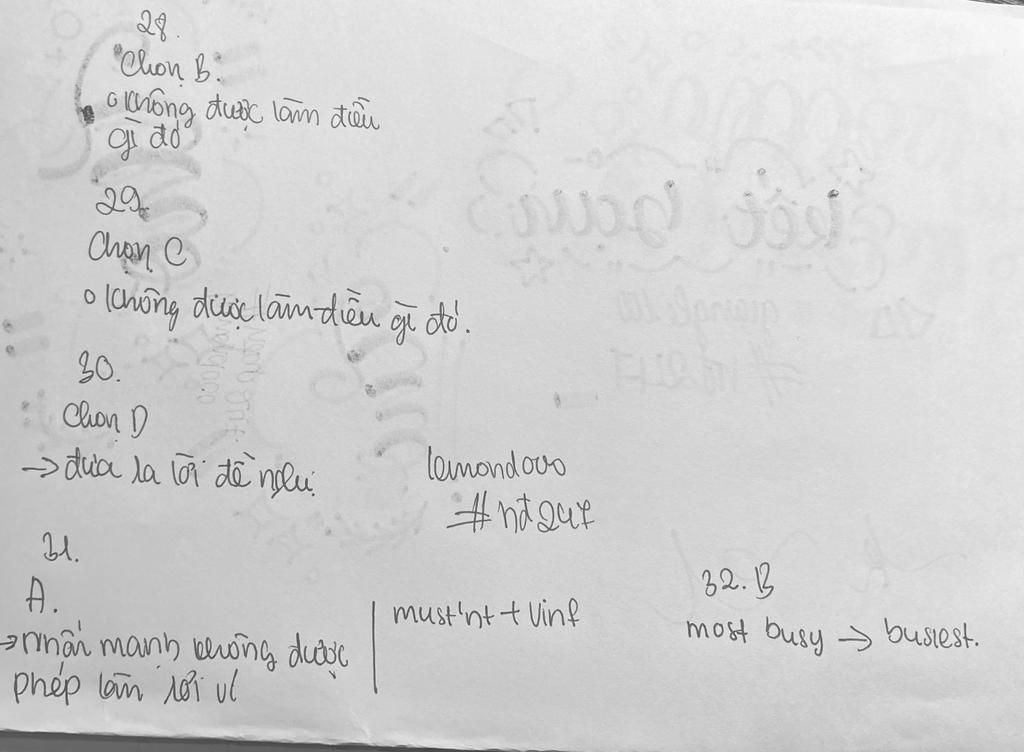 28.
"Chọn B:
o không được làm điều
gì đó
29.
Chọn C
o không được làm điều gì đó.
30.
Chọn D
→ đưa ra lời đề nghị.
lemondovo
#hđ247
31.
A.
→ nhấn mạnh không được
phép làm
must'nt + Vinf
32. B
most busy → busiest.